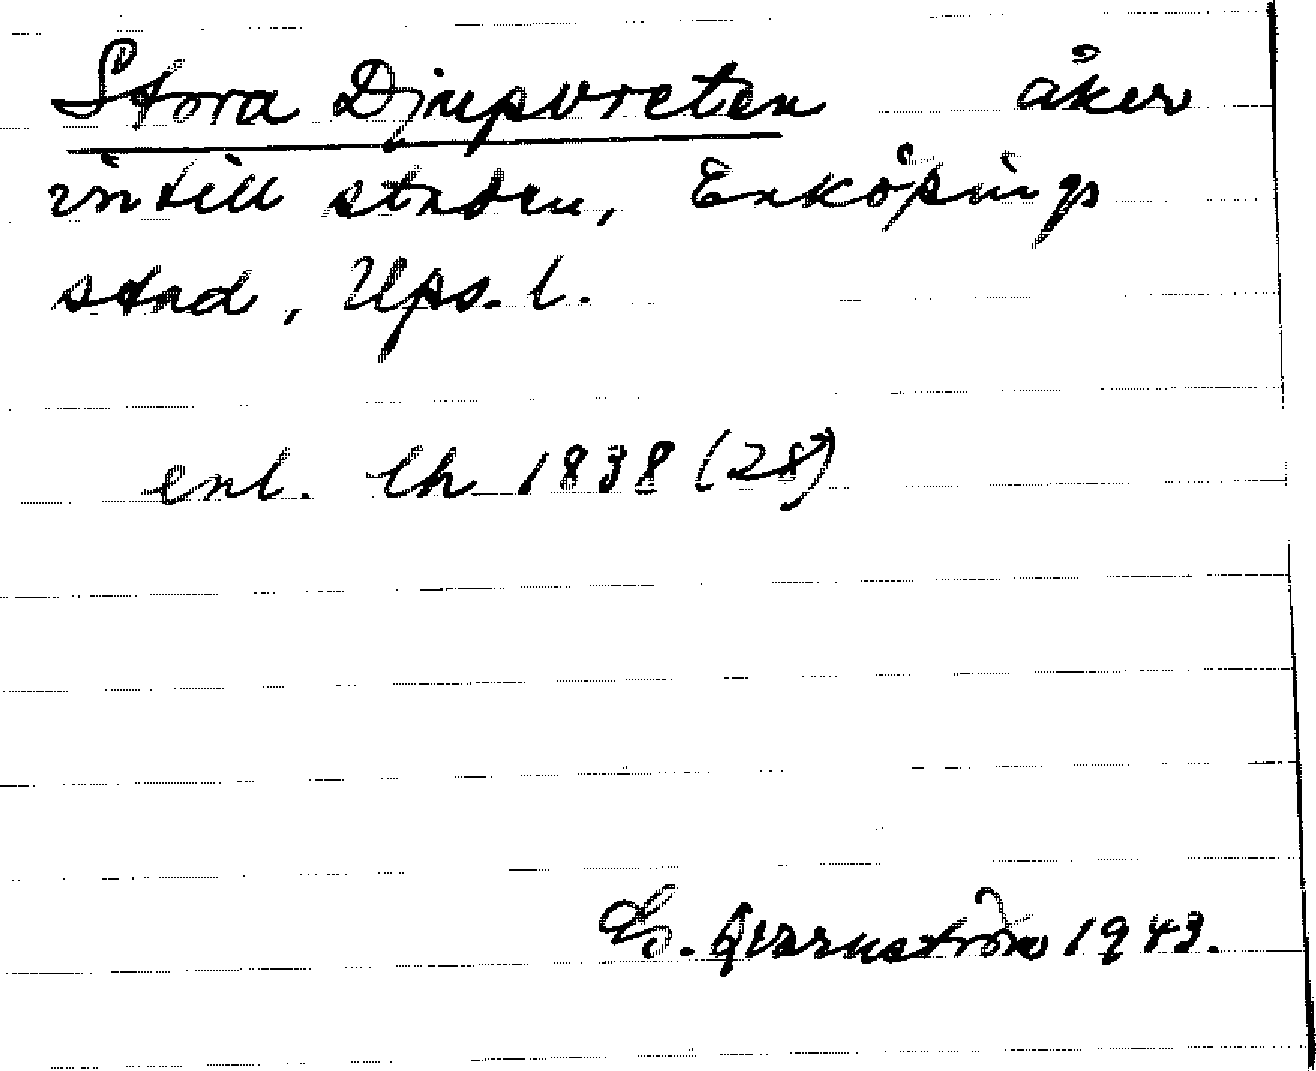 Stora Djupvreten åker
intill staden, Enköpings
stad, Ups. l.
enl. lh 1838 (28)
G. Qvarnström 1943.